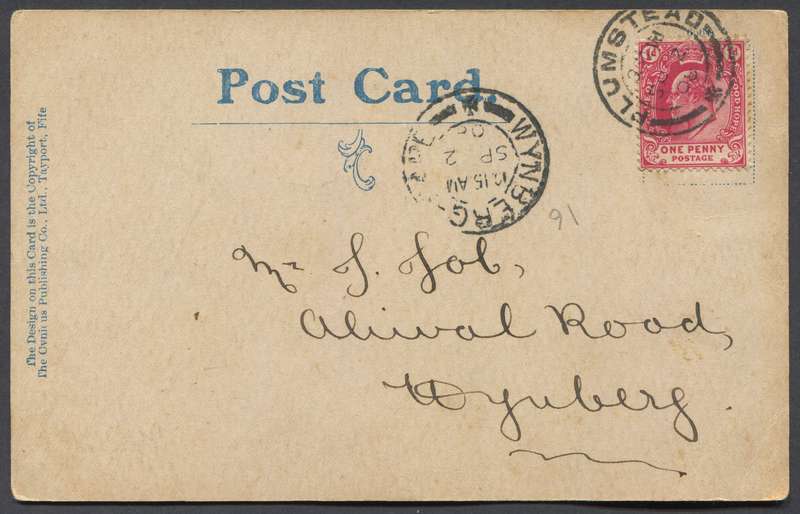 Post Card.
PLUMSTEAD
SP 2
GOOD HOPE
ONE PENNY
POSTAGE
WYNBERG
SP 2
10.15 AM
91
Mr J. Job,
Aliwal Road,
Wynberg.
The Design on this Card is the Copyright of
The Cynicus Publishing Co., Ltd., Tayport, Fife